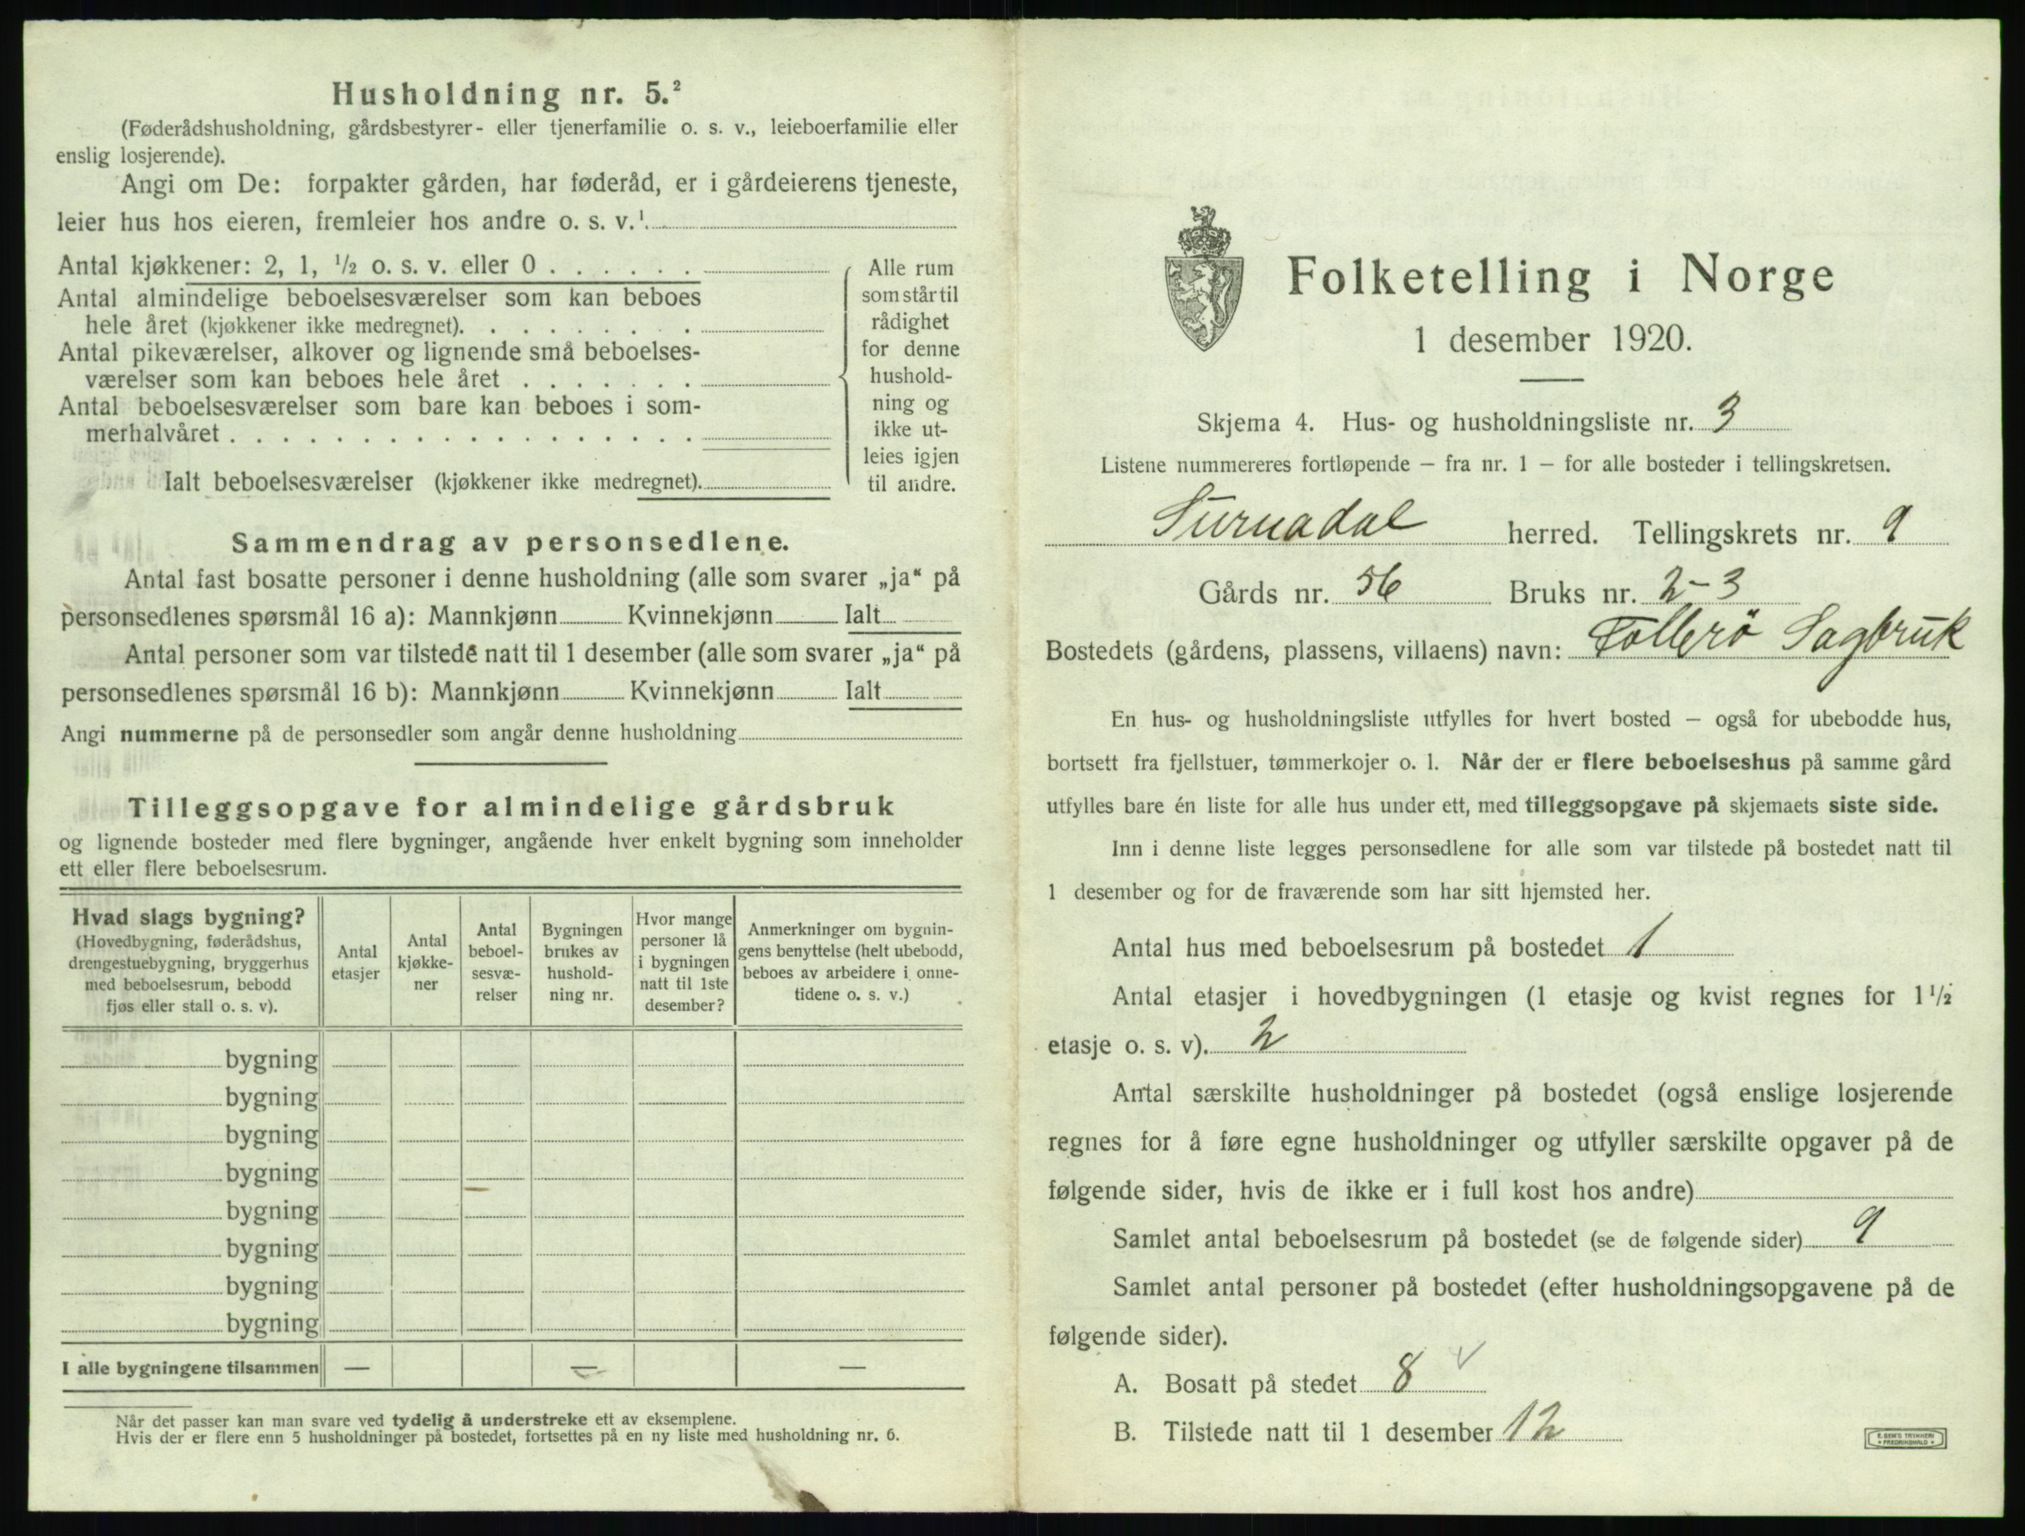 Husholdning nr. 5.²
(Føderådshusholdning, gårdsbestyrer- eller tjenerfamilie o. s. v., leieboerfamilie eller
enslig losjerende).
Angi om De: forpakter gården, har føderåd, er i gårdeierens tjeneste,
leier hus hos eieren, fremleier hos andre o. s. v.¹
Antal kjøkkener: 2, 1, ½ o. s. v. eller 0 . . . . . .
Antal almindelige beboelsesværelser som kan beboes
hele året (kjøkkener ikke medregnet). . . . . . . . .
Antal pikeværelser, alkover og lignende små beboelses-
værelser som kan beboes hele året . . . . . . .
Antal beboelsesværelser som bare kan beboes i som-
merhalvåret . . . . . . . . . . . . . . . . . .
Ialt beboelsesværelser (kjøkkener ikke medregnet).
Alle rum
som står til
rådighet
for denne
hushold-
ning og
ikke ut-
leies igjen
til andre.
Sammendrag av personsedlene.
Antal fast bosatte personer i denne husholdning (alle som svarer „ja“ på
personsedlenes spørsmål 16 a): Mannkjønn Kvinnekjønn Ialt
Antal personer som var tilstede natt til 1 desember (alle som svarer „ja“ på
personsedlenes spørsmål 16 b): Mannkjønn Kvinnekjønn Ialt
Angi nummerne på de personsedler som angår denne husholdning
Tilleggsopgave for almindelige gårdsbruk
og lignende bosteder med flere bygninger, angående hver enkelt bygning som inneholder
ett eller flere beboelsesrum.
Hvad slags bygning?
(Hovedbygning, føderådshus,
drengestuebygning, bryggerhus
med beboelsesrum, bebodd
fjøs eller stall o. s. v).
Antal
etasjer
Antal
kjøkke-
ner
Antal
beboel-
sesvæ-
relser
Bygningen
brukes av
hushold-
ning nr.
Hvor mange
personer lå
i bygningen
natt til 1ste
desember?
Anmerkninger om bygnin-
gens benyttelse (helt ubebodd,
beboes av arbeidere i onne-
tidene o. s. v.)
bygning
bygning
bygning
bygning
bygning
bygning
bygning
bygning
I alle bygningene tilsammen — — —
Når det passer kan man svare ved tydelig å understreke ett av eksemplene.
Hvis der er flere enn 5 husholdninger på bostedet, fortsettes på en ny liste med husholdning nr. 6.
Folketelling i Norge
1 desember 1920.
Skjema 4. Hus- og husholdningsliste nr. 3
Listene nummereres fortløpende – fra nr. 1 – for alle bosteder i tellingskretsen.
Surnadal herred. Tellingskrets nr. 9
Gårds nr. 56 Bruks nr. 2-3
Bostedets (gårdens, plassens, villaens) navn: Tollerö Sagbruk
En hus- og husholdningsliste utfylles for hvert bosted – også for ubebodde hus,
bortsett fra fjellstuer, tømmerkojer o. l. Når der er flere beboelseshus på samme gård
utfylles bare én liste for alle hus under ett, med tilleggsopgave på skjemaets siste side.
Inn i denne liste legges personsedlene for alle som var tilstede på bostedet natt til
1 desember og for de fraværende som har sitt hjemsted her.
Antal hus med beboelsesrum på bostedet 1
Antal etasjer i hovedbygningen (1 etasje og kvist regnes for 1½
etasje o. s. v). 2
Antal særskilte husholdninger på bostedet (også enslige losjerende
regnes for å føre egne husholdninger og utfyller særskilte opgaver på de
følgende sider, hvis de ikke er i full kost hos andre)
Samlet antal beboelsesrum på bostedet (se de følgende sider) 9
Samlet antal personer på bostedet (efter husholdningsopgavene på de
følgende sider).
A. Bosatt på stedet 8 √
B. Tilstede natt til 1 desember 12
E. SEM'S TRYKKERI
FREDRIKSHALD